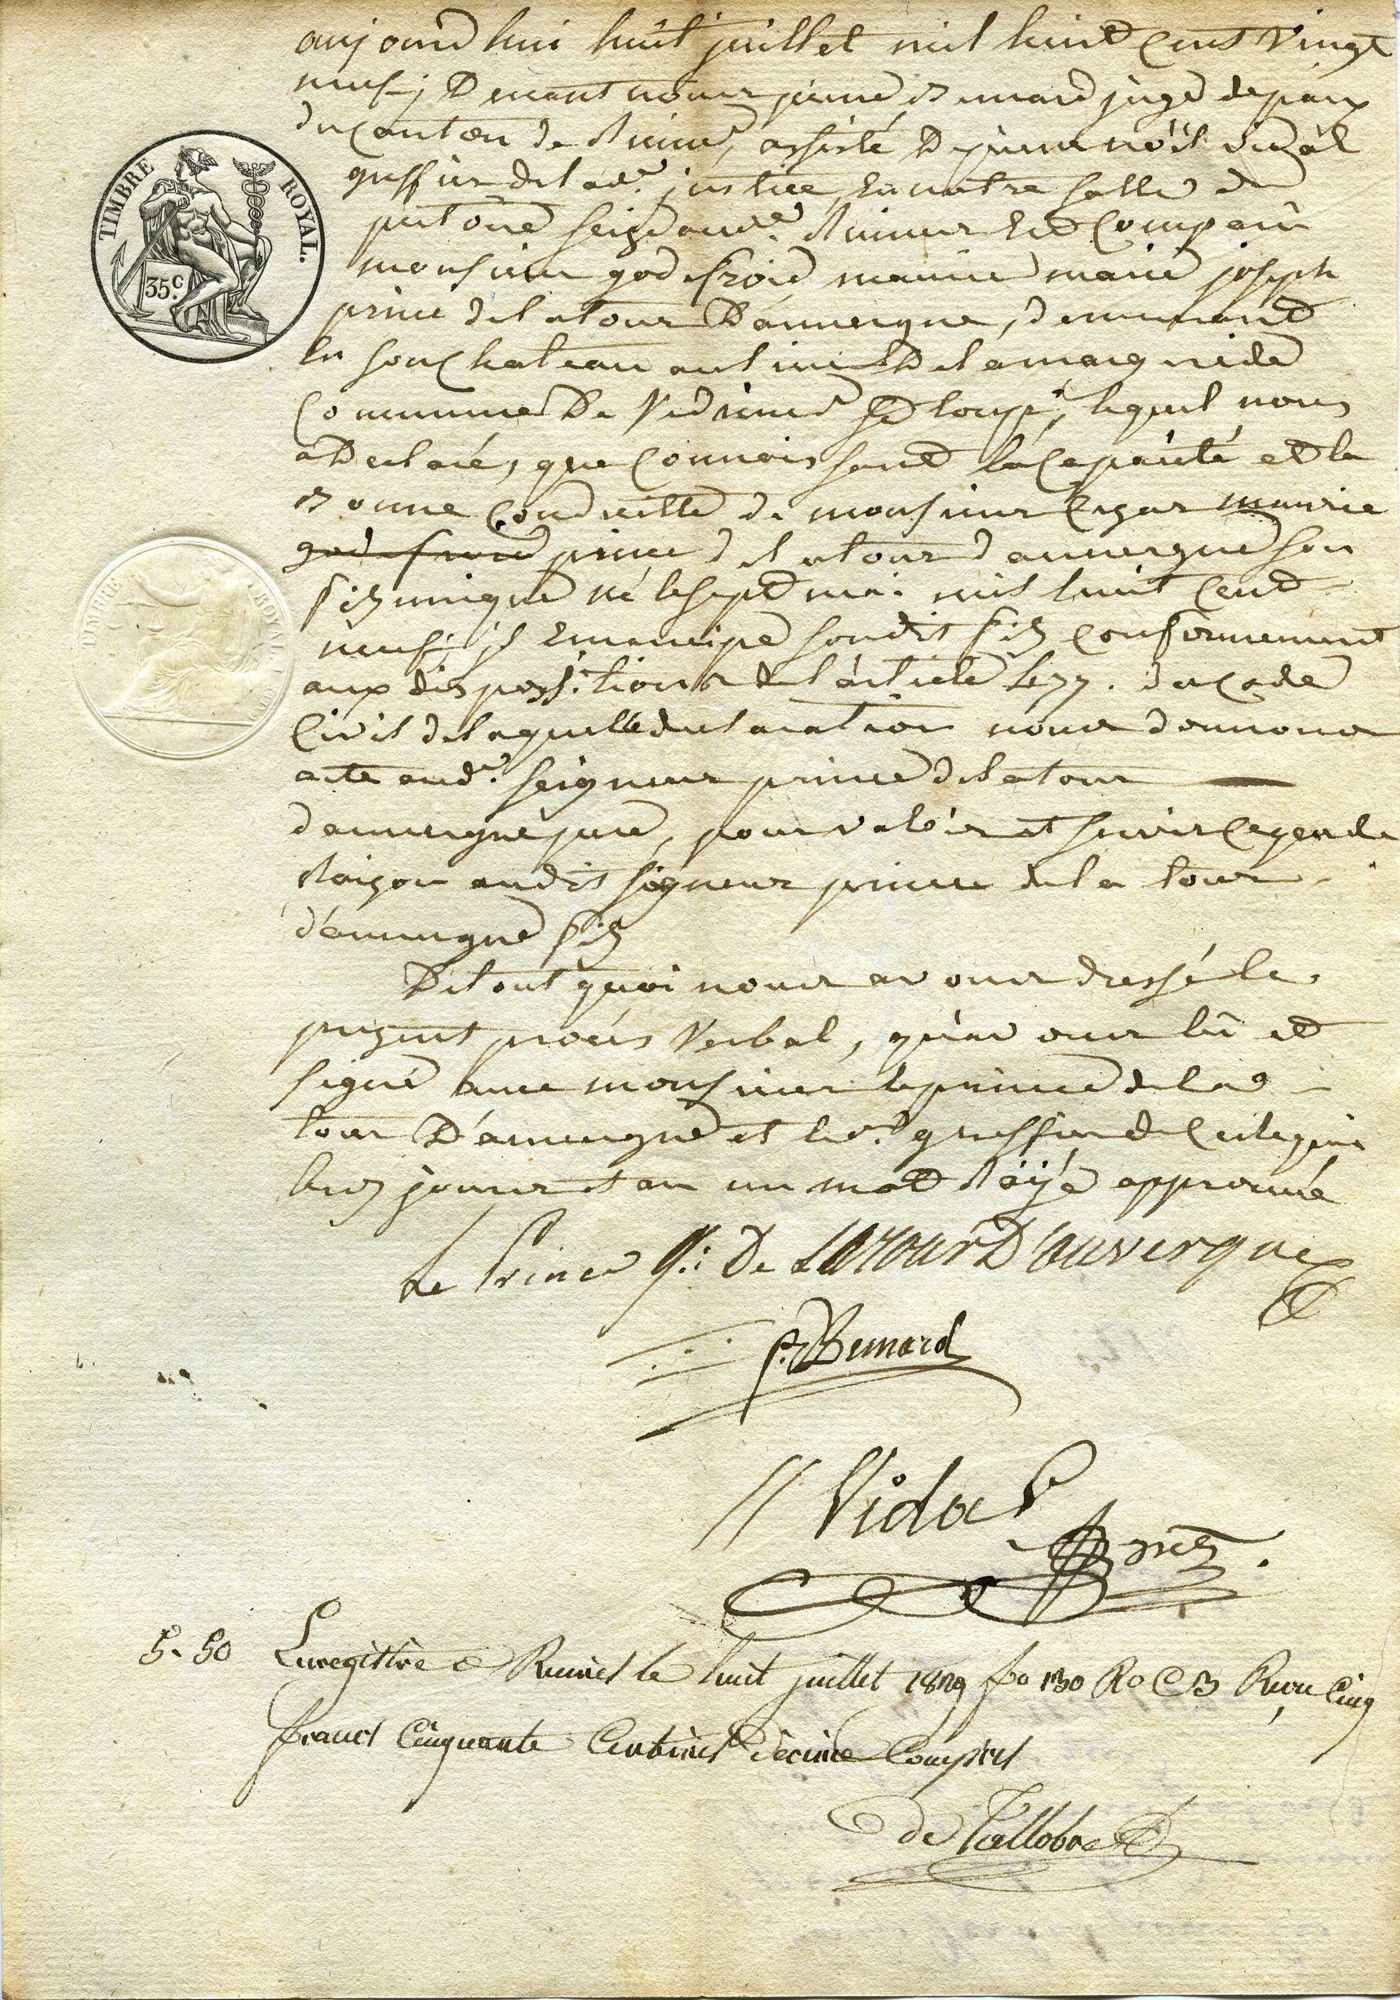 aujourd'hui huit juillet mil huit cens vingt
neuf, Devant nous pierre Bernard juge de paix
du canton de Ruines, assisté De pierre noël vidal
greffier de lade. justice, En notre salle
prétoire seize aud.t Ruines Est Comparu
monsieur godefroid maurice marie joseph
prince de la tour D'auvergne, demeurant
En son Chateau au lieu De lamargeride
Commune De Védrines St loup, lequel nous
a Declaré, que Connoissant la Capacité et la
Bonne Conduitte de monsieur Cezar maurice
godefroid prince de la tour d'auvergne son
fils unique né le sept mai mil huit Cent
neuf, il Emancipe son dit fils Conformement
aux dispositions de l'article 477. du Code
Civil de laquelle declaration nous donnons
acte aud.t seigneur prince de la tour
d'auvergne pere, pour valoir et servir Ce que de
Raizon au dit seigneur prince de la tour
d'auvergne fils
De tout quoi nous avons dressé le
prezent procés Verbal, qu'avons lû et
signé avec monsieur le prince de la
tour D'auvergne et led.t greffier
lesd jour et an un mot Raÿé approuvé
Le Prince G.i De LaTour D'auvergne
P. Bernard
Vidal
TIMBRE ROYAL.
35.c
TIMBRE ROYAL
5-50 Enregistré a Ruines le huit juillet 1829 fo 130 Ro C 3 Reçu Cinq
francs Cinquante Centimes décime Compris
de Tallobre